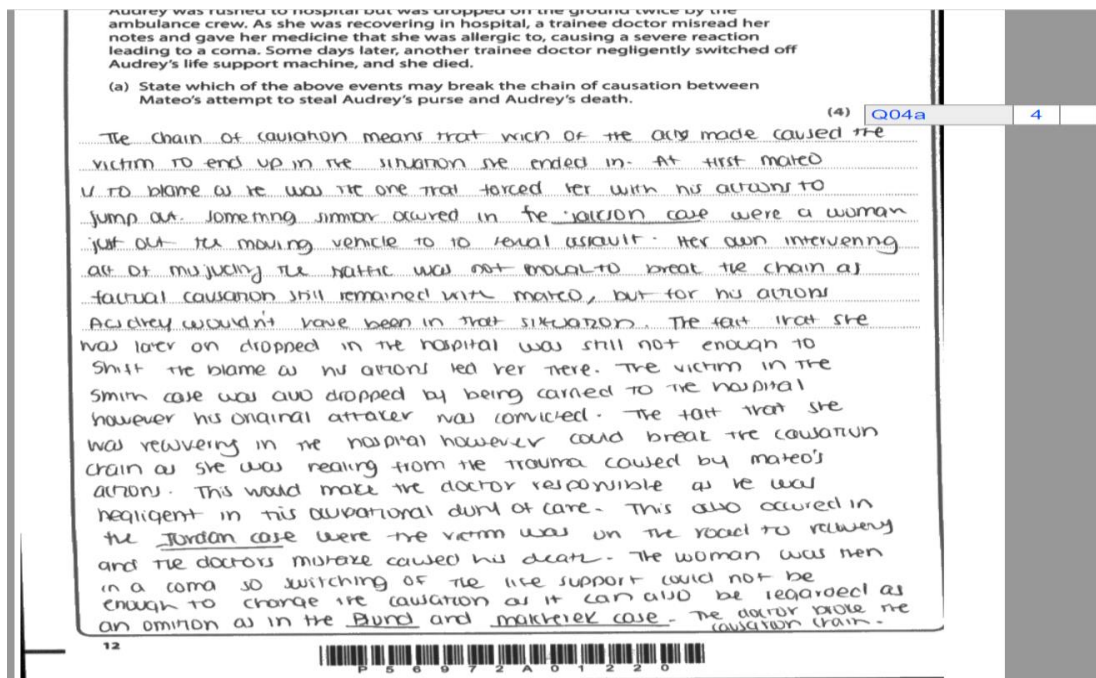 Audrey was rushed to hospital but was dropped on the ground twice by the
ambulance crew. As she was recovering in hospital, a trainee doctor misread her
notes and gave her medicine that she was allergic to, causing a severe reaction
leading to a coma. Some days later, another trainee doctor negligently switched off
Audrey's life support machine, and she died.
(a) State which of the above events may break the chain of causation between
Mateo's attempt to steal Audrey's purse and Audrey's death.
(4) Q04a 4
The chain of causation means that wich of the acts made caused the
victim to end up in the situation she ended in. At first mateo
is to blame as he was the one that forced her with his actions to
jump out. Something occured in the case were a woman
just out the moving vehicle to to sexual assault. Her own intervening
act of the traffic was not to break the chain as
factual causation still remained with mateo, but for his actions
wouldn't have been in that situation. The fact that she
was later on dropped in the hospital was still not enough to
shift the blame as his actions led her there. The victim in the
Smith case was also dropped by being carried to the hospital
however his original attaker was convicted. The fact that she
was recovering in the hospital however could break the causation
chain as she was healing from the trauma caused by mateo's
actions. This would make the doctor responsible as he was
negligent in his duty of care. This also occured in
the Jordan case were the victim was on the road to recovery
and the doctors mistake caused his death. The woman was then
in a coma so switching of the life support could not be
enough to change the causation as it can also be regarded as
an omition as in the and case. The doctor broke the
causation chain.
12
P56972A01220